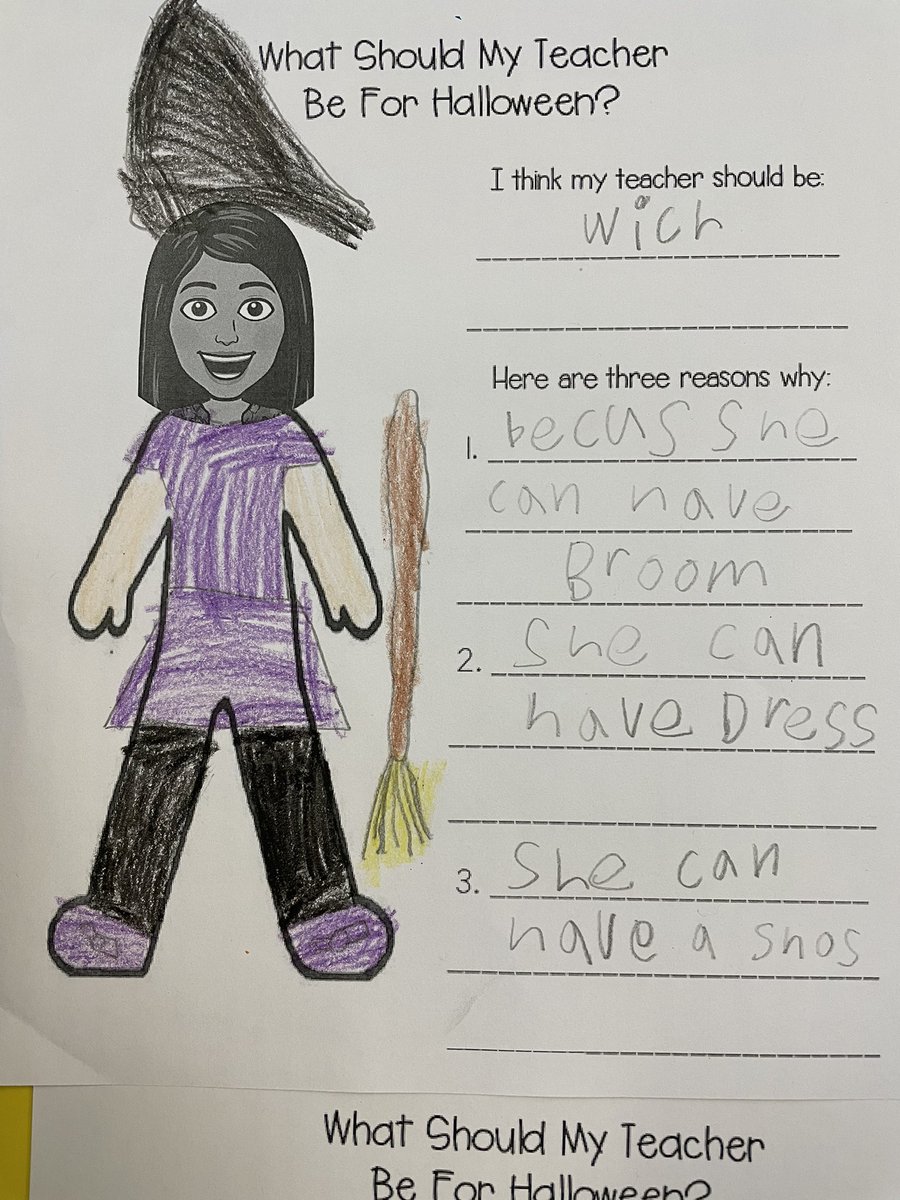 What Should My Teacher
Be For Halloween?
I think my teacher should be:
wich
Here are three reasons why:
1. becus She
can have
Broom
2. She can
have Dress
3. She can
have a shos
What Should My Teacher
Be For Halloween?